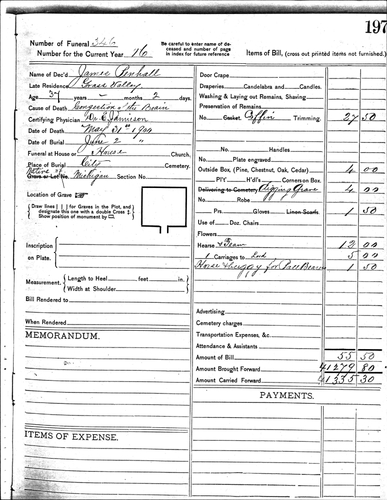 197
Number of Funeral 346
Number for the Current Year 16
Be careful to enter name of deceased and number of page in index for future reference
Items of Bill, (cross out printed items not furnished.)
Name of Dec'd James Penhall
Late Residence Grass Valley
Age 37 years - months 2 days.
Cause of Death Congestion of the Brain
Certifying Physician Dr. C. Jamieson
Date of Death May 31st 1900
Date of Burial June 2 "
Funeral at House or House Church.
Place of Burial City Cemetery.
Native of
Grave or Lot No. Michigan Section No.
Location of Grave
Draw lines | | for Graves in the Plot, and designate this one with a double Cross
Show position of monument by
Inscription
on Plate.
Measurement. Length to Heel feet in.
Width at Shoulder
Bill Rendered
When Rendered
MEMORANDUM.
ITEMS OF EXPENSE.
Door Crape
Draperies, Candelabra and Candles.
Washing & Laying out Remains, Shaving.
Preservation of Remains
No Casket. Coffin Trimming. 27 50
No. Handles
Plate engraved
Outside Box, (Pine, Chestnut, Oak, Cedar) 4 00
P'l'f H'dl's Corners on Box.
Delivering to Cemetery Digging Grave 4 00
No. Robe
Prs. Gloves Linen Scarfs 1 50
Use of Doz. Chairs
Flowers
Hearse & Team 12 00
1 Carriages to 5 00
Horse & Buggy for Pall Bearers 1 50
Advertising
Cemetery charges
Transportation Expenses, &c.
Attendance & Assistants
Amount of Bill 55 50
Amount Brought Forward 41279 80
Amount Carried Forward 41335 30
PAYMENTS.